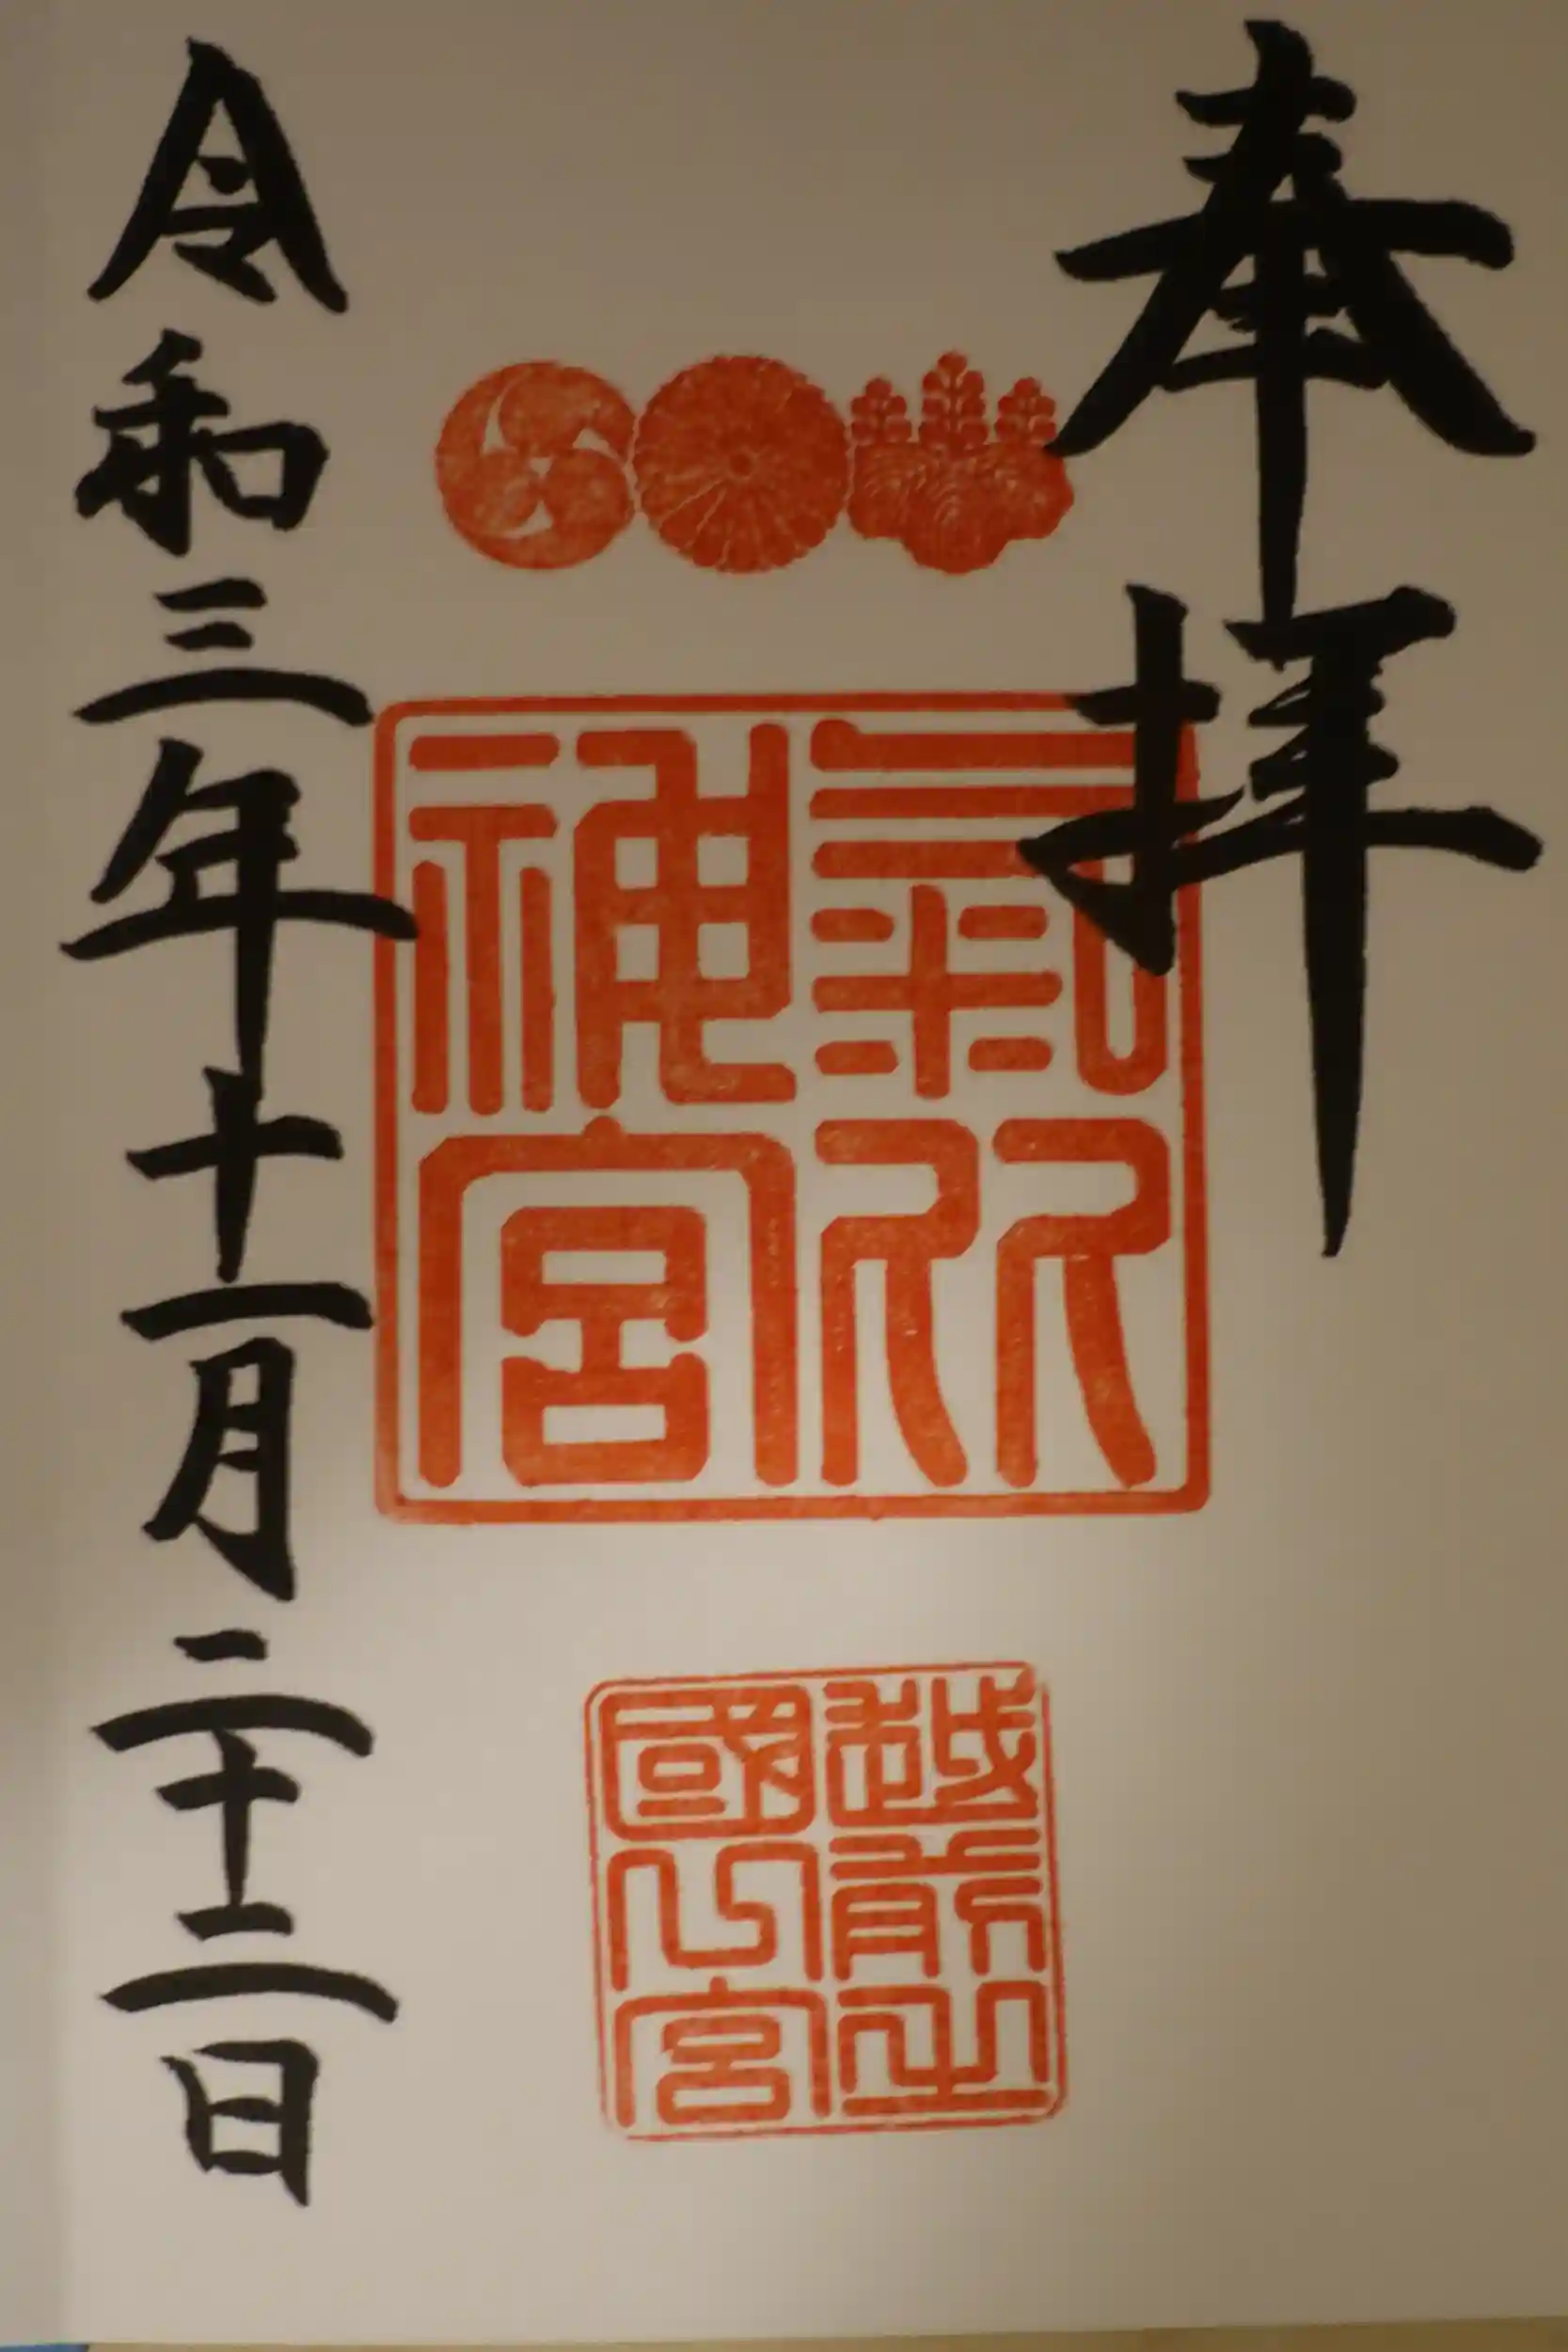 奉拝
氣比神宮
越前國一宮
令和三年十一月二十二日